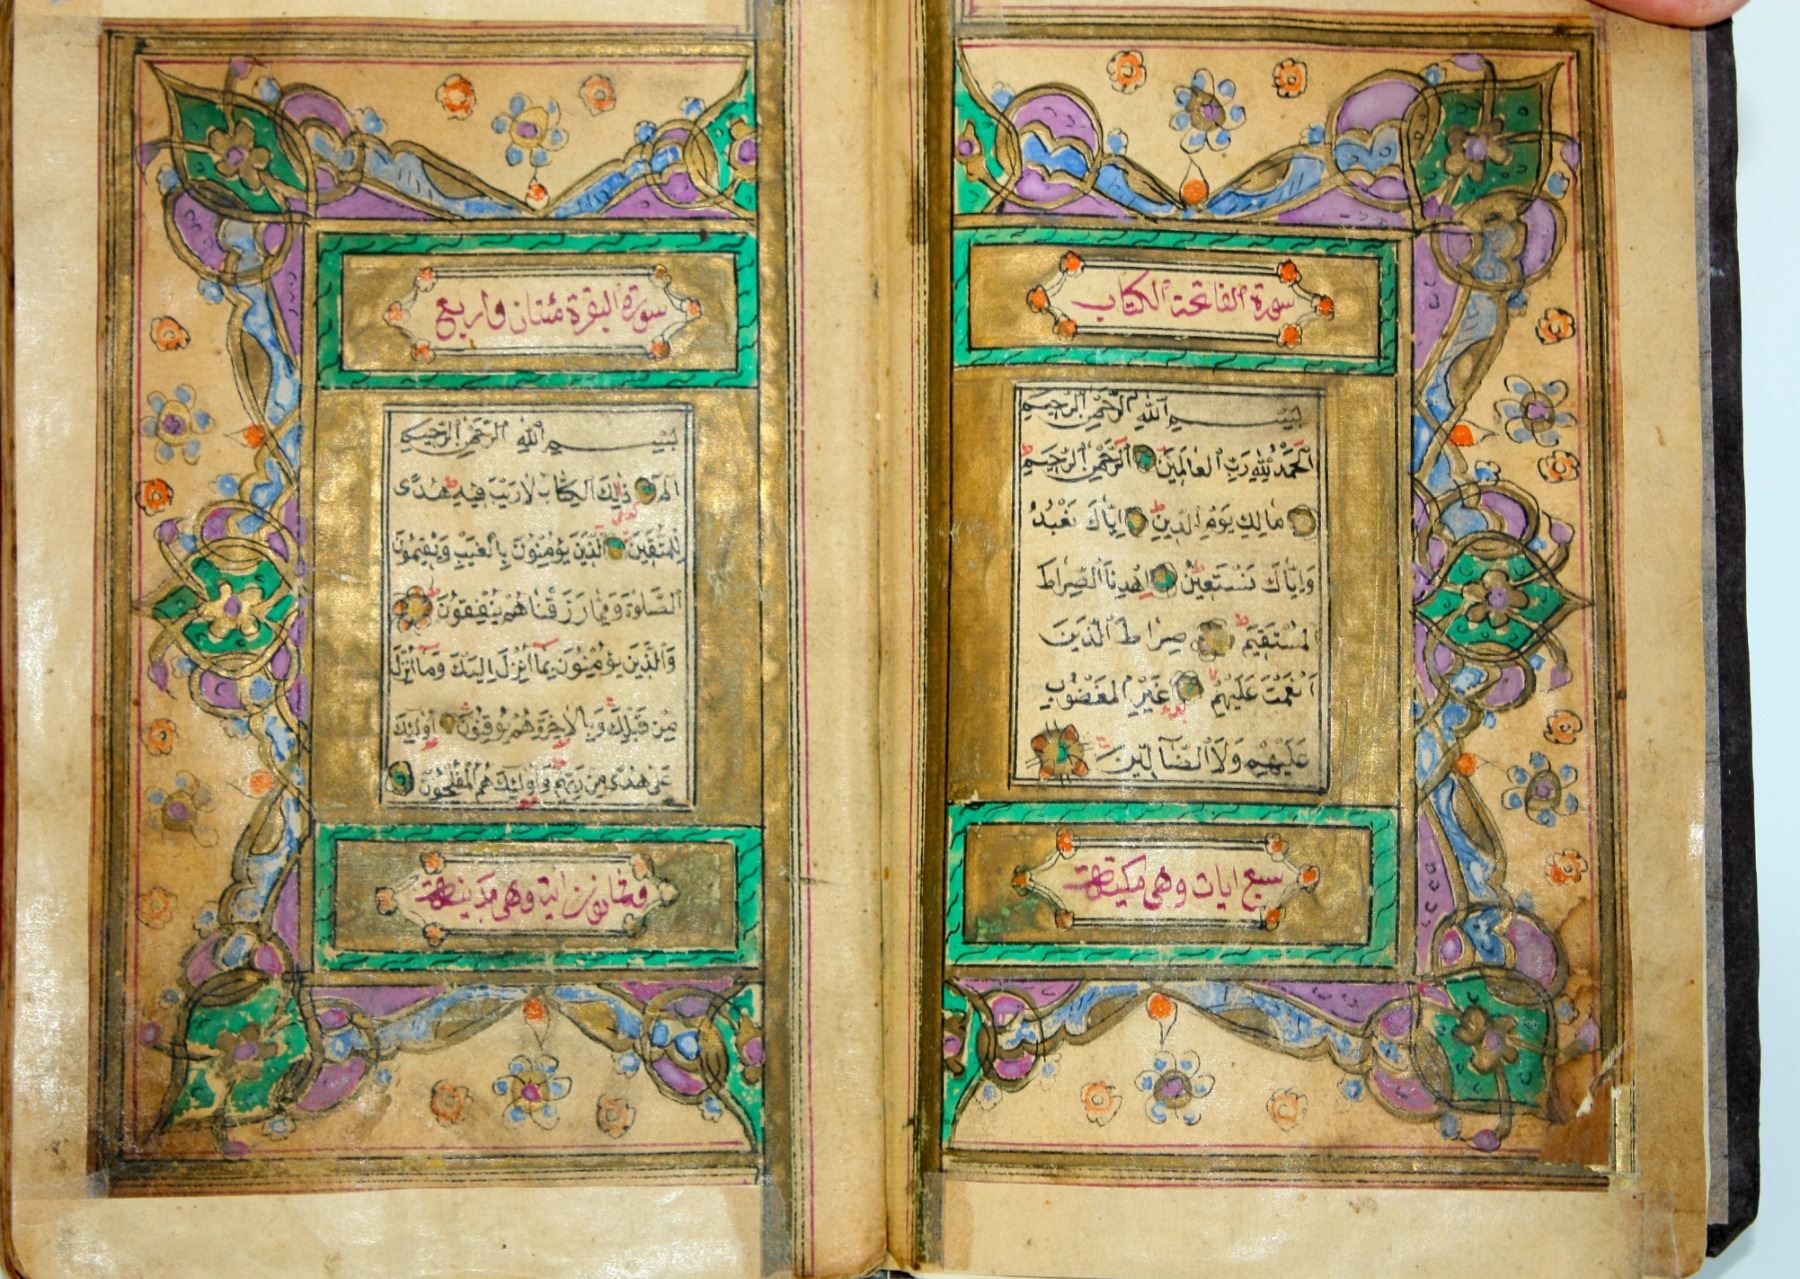 سورة الفاتحة الكتاب
بسم الله الرحمن الرحيم
اَلْحَمْدُ لِلّٰهِ رَبِّ الْعَالَمِينَ اَلرَّحْمٰنِ الرَّحِيمِ
مَالِكِ يَوْمِ الدِّينِ اِيَّاكَ نَعْبُدُ
وَاِيَّاكَ نَسْتَعِينُ اِهْدِنَا الصِّرَاطَ
الْمُسْتَقِيمَ صِرَاطَ الَّذِينَ
اَنْعَمْتَ عَلَيْهِمْ غَيْرِ الْمَغْضُوبِ
عَلَيْهِمْ وَلَا الضَّالِّينَ
سبع ايات وهى مكية
سورة البقرة مئتان واربع
بسم الله الرحمن الرحيم
الم ذٰلِكَ الْكِتَابُ لَا رَيْبَ فِيهِ هُدًى
لِلْمُتَّقِينَ اَلَّذِينَ يُؤْمِنُونَ بِالْغَيْبِ وَيُقِيمُونَ
الصَّلٰوةَ وَمِمَّا رَزَقْنَاهُمْ يُنْفِقُونَ
وَالَّذِينَ يُؤْمِنُونَ بِمَا اُنْزِلَ اِلَيْكَ وَمَا اُنْزِلَ
مِنْ قَبْلِكَ وَبِالْاٰخِرَةِ هُمْ يُوقِنُونَ اُولٰئِكَ
عَلٰى هُدًى مِنْ رَبِّهِمْ وَاُولٰئِكَ هُمُ الْمُفْلِحُونَ
وثمانون اية وهى مدنية